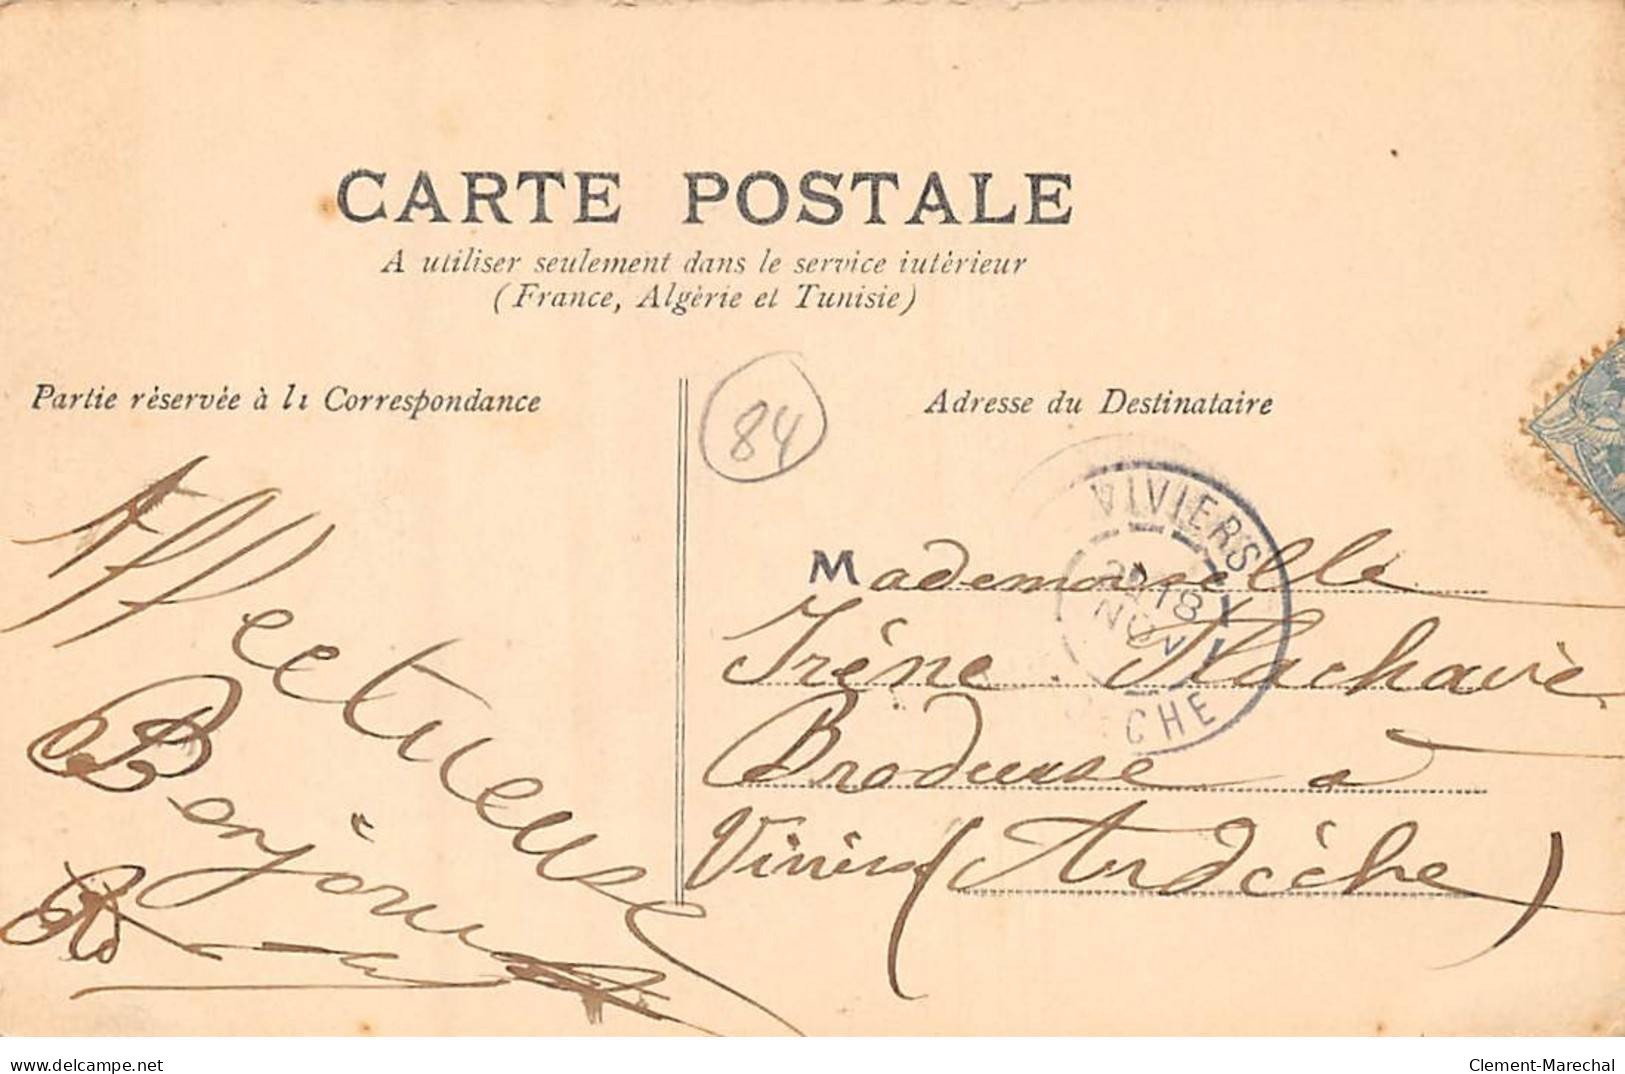 CARTE POSTALE
A utiliser seulement dans le service intérieur
(France, Algérie et Tunisie)
Partie réservée à la Correspondance
Adresse du Destinataire
84
VIVIERS
18
NOV
CHE
Mademoiselle
Irène Flachavè
Brodeuse a
Viviers (Ardèche)
Affectueuse
Bonjour
www.delcampe.net
Clement-Marechal